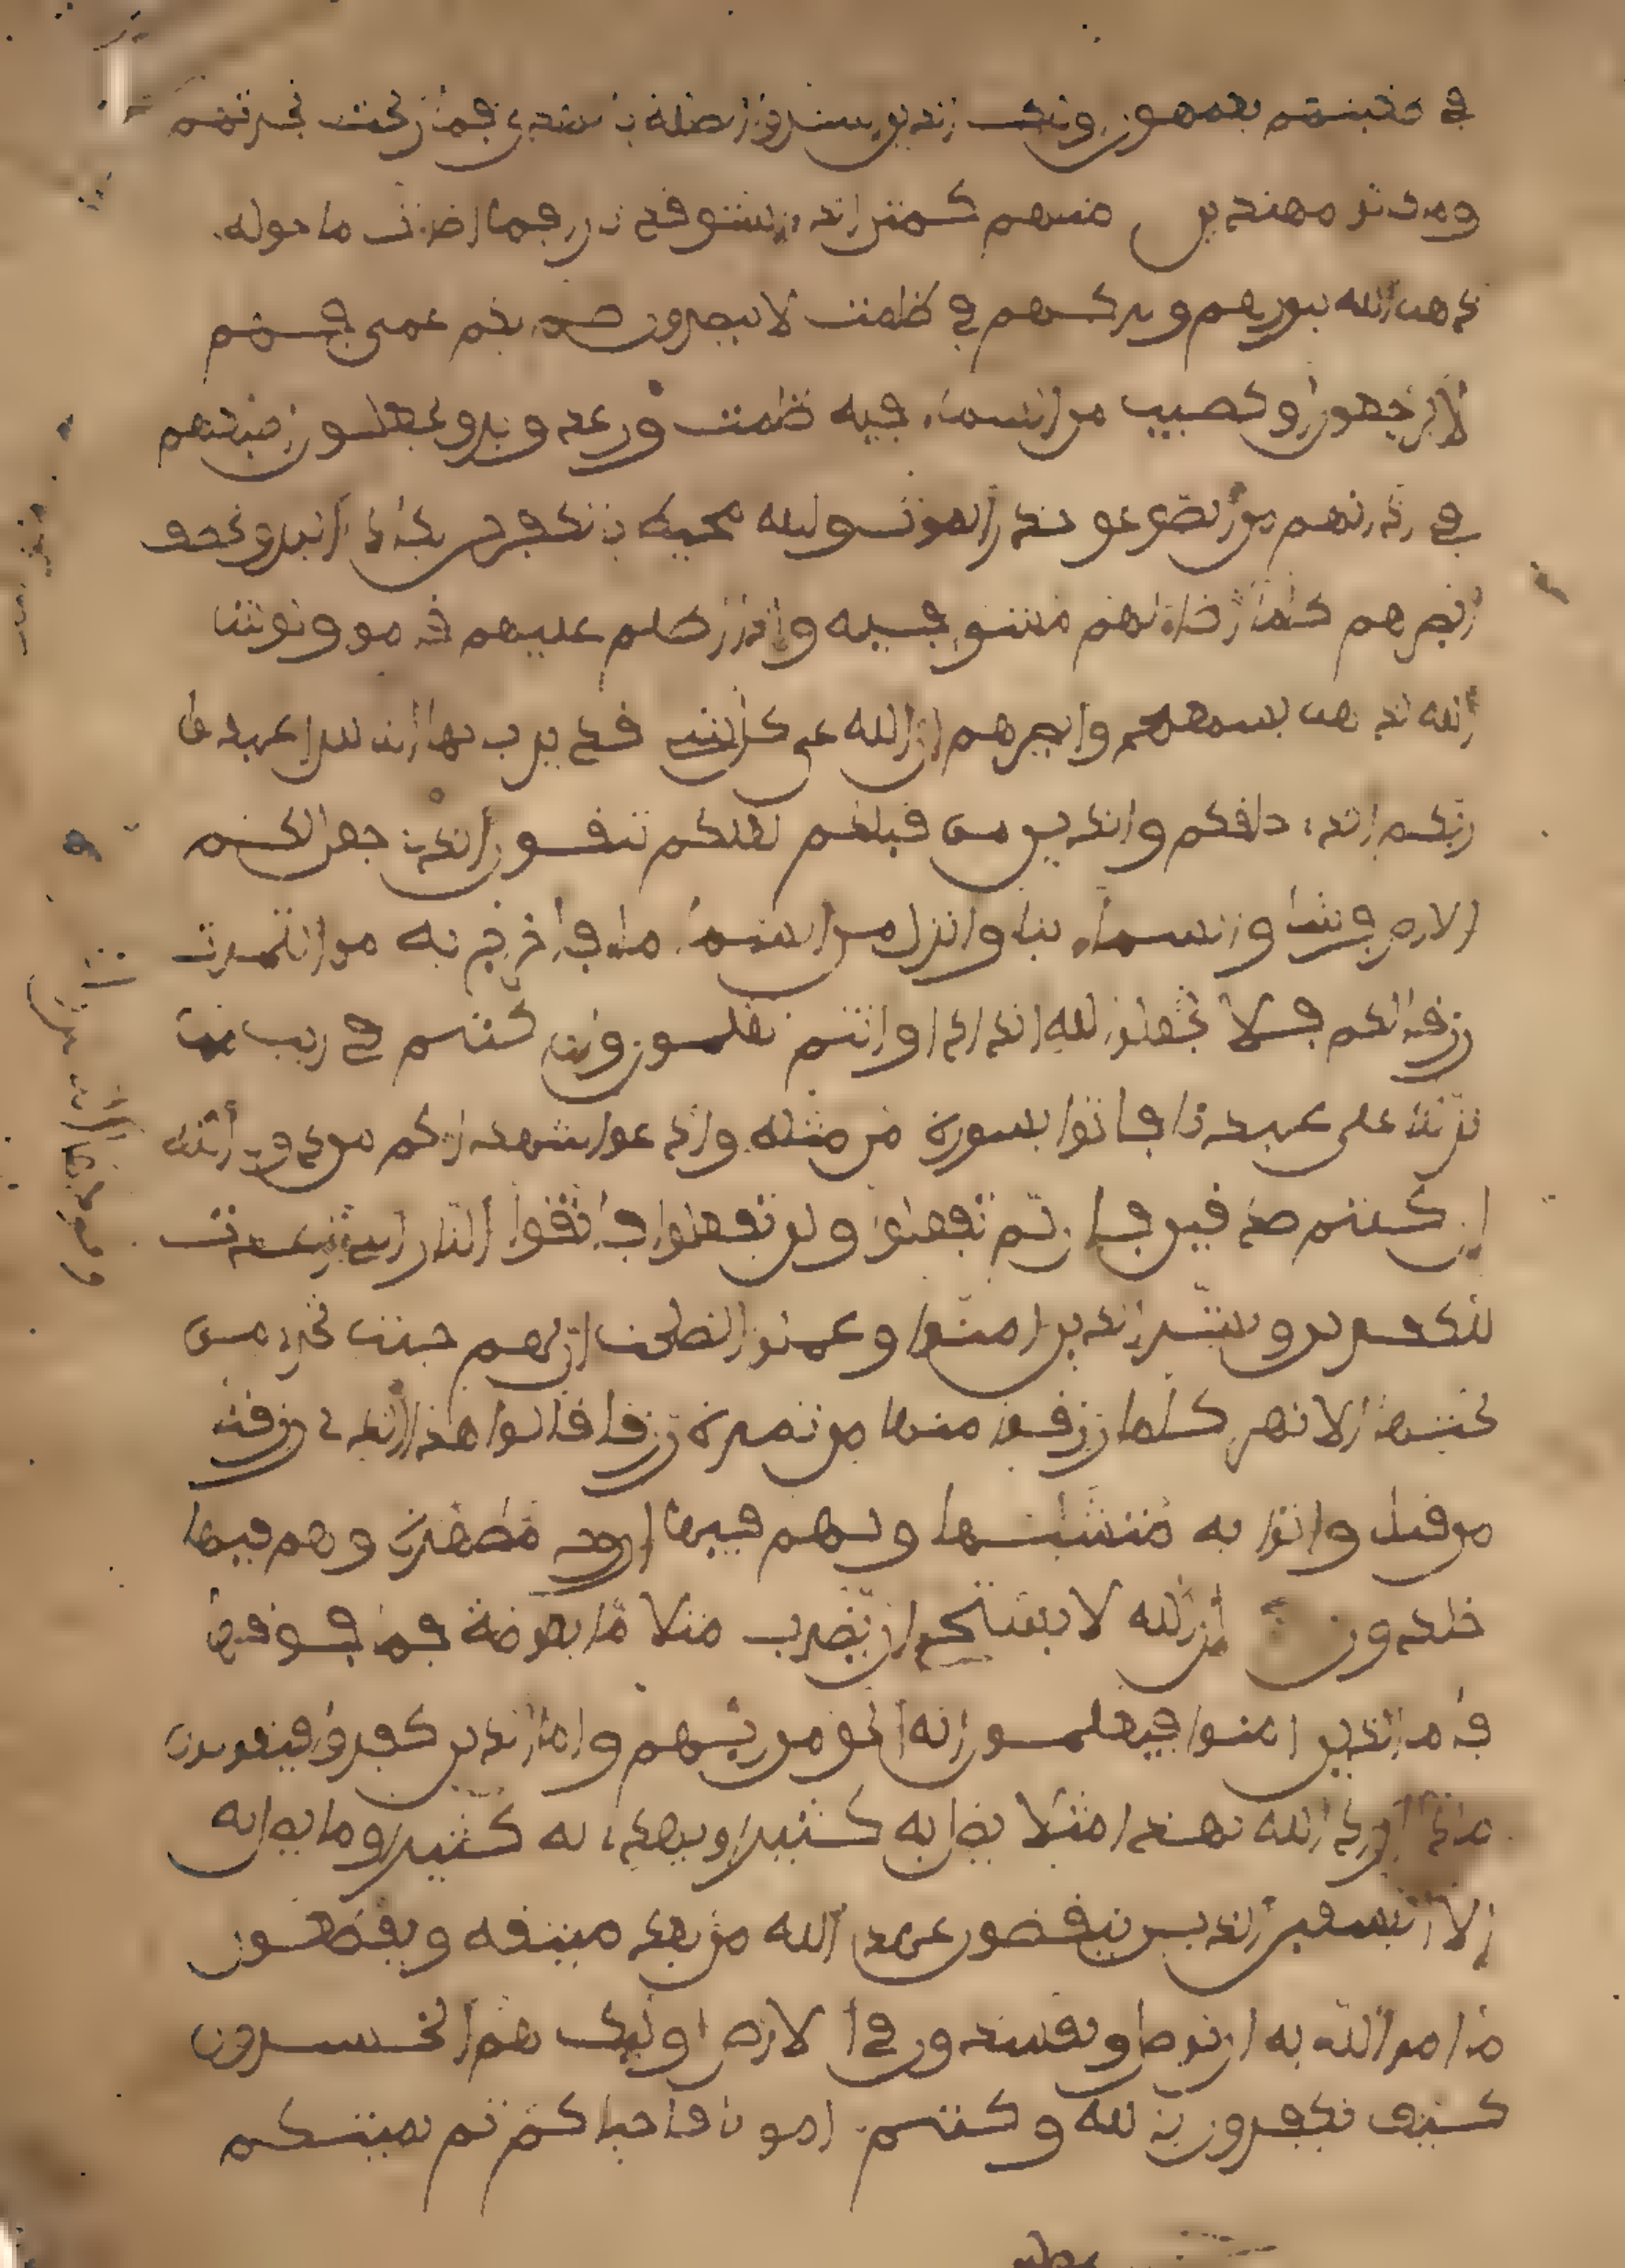 في طغينهم يعمهون أولئك الذين اشتروا الضللة بالهدى فما ربحت تجرتهم
وما كانوا مهتدين مثلهم كمثل الذي استوقد نارا فلما أضاءت ما حوله
ذهب الله بنورهم وتركهم في ظلمت لا يبصرون صم بكم عمي فهم
لا يرجعون أو كصيب من السماء فيه ظلمت ورعد وبرق يجعلون أصبعهم
في ءاذانهم من الصوعق حذر الموت والله محيط بالكفرين يكاد البرق يخطف
أبصرهم كلما أضاء لهم مشوا فيه وإذا أظلم عليهم قاموا ولو شاء
الله لذهب بسمعهم وأبصرهم إن الله على كل شيء قدير يأيها الناس اعبدوا
ربكم الذي خلقكم والذين من قبلكم لعلكم تتقون الذي جعل لكم
الارض فرشا والسماء بناء وانزل من السماء ماء فأخرج به من الثمرت
رزقا لكم فلا تجعلوا لله اندادا وانتم تعلمون وإن كنتم في ريب مما
نزلنا على عبدنا فاتوا بسورة من مثله وادعوا شهداءكم من دون الله
إن كنتم صدقين فإن لم تفعلوا ولن تفعلوا فاتقوا النار التي أعدت
للكفرين وبشر الذين امنوا وعملوا الصلحت أن لهم جنت تجري من
تحتها الانهر كلما رزقوا منها من ثمرة رزقا قالوا هذا الذي رزقنا
من قبل واتوا به متشبها ولهم فيها ازوج مطهرة وهم فيها
خلدون إن الله لا يستحي ان يضرب مثلا ما بعوضة فما فوقها
فأما الذين امنوا فيعلمون أنه الحق من ربهم واما الذين كفروا فيقولون
ماذا أراد الله بهذا مثلا يضل به كثيرا ويهدي به كثيرا وما يضل به
إلا الفسقين الذين ينقضون عهد الله من بعد ميثقه ويقطعون
ما امر الله به ان يوصل ويفسدون في الارض اوليك هم الخسرون
كيف تكفرون بالله وكنتم امواتا فاحياكم ثم يميتكم